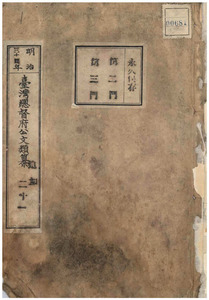 00684
永久保存
第二門
第三門
明治
三十四年
臺灣總督府公文類纂
追加
二十一